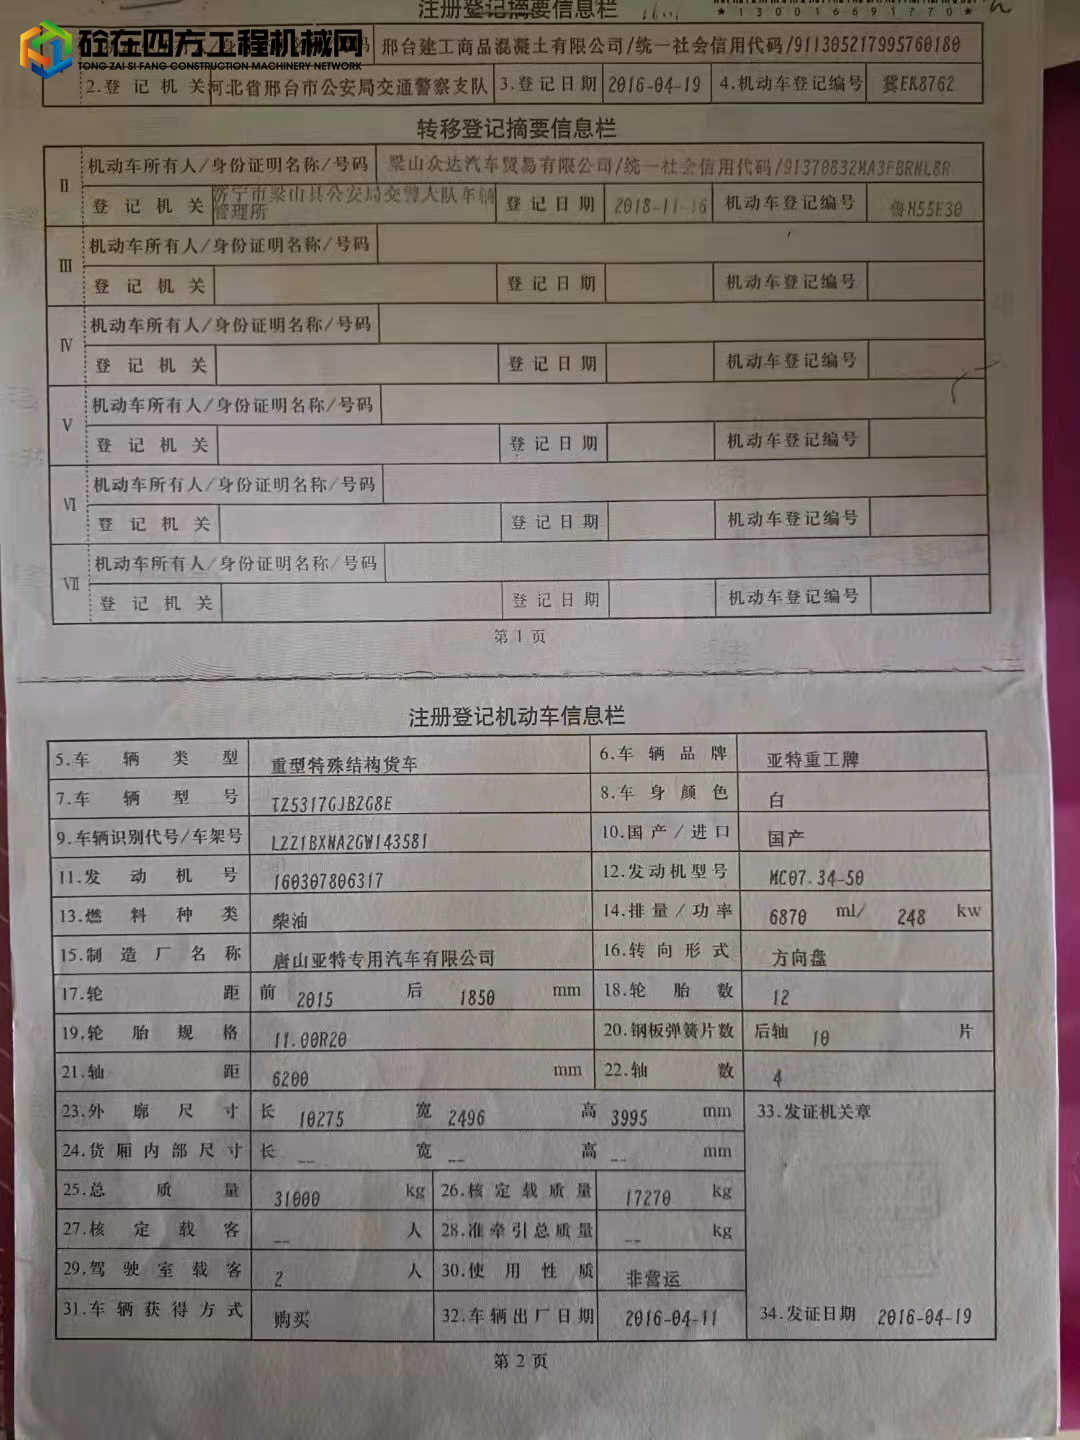 注册登记摘要信息栏
*130016691770*
砼在四方工程机械网
TONG ZAI SI FANG CONSTRUCTION MACHINERY NETWORK
/身份证明名称/号码 邢台建工商品混凝土有限公司/统一社会信用代码/911305217995760180
2.登记机关 河北省邢台市公安局交通警察支队 3.登记日期 2016-04-19 4.机动车登记编号 冀EK8762
转移登记摘要信息栏
Ⅱ 机动车所有人/身份证明名称/号码 梁山众达汽车贸易有限公司/统一社会信用代码/91370832MA3FBRWL8R
登记机关 济宁市梁山县公安局交警大队车辆管理所 登记日期 2018-11-16 机动车登记编号 鲁H55E30
Ⅲ 机动车所有人/身份证明名称/号码
登记机关 登记日期 机动车登记编号
Ⅳ 机动车所有人/身份证明名称/号码
登记机关 登记日期 机动车登记编号
Ⅴ 机动车所有人/身份证明名称/号码
登记机关 登记日期 机动车登记编号
Ⅵ 机动车所有人/身份证明名称/号码
登记机关 登记日期 机动车登记编号
Ⅶ 机动车所有人/身份证明名称/号码
登记机关 登记日期 机动车登记编号
第1页
注册登记机动车信息栏
5.车辆类型 重型特殊结构货车 6.车辆品牌 亚特重工牌
7.车辆型号 TZ5317GJBZG8E 8.车身颜色 白
9.车辆识别代号/车架号 LZZ1BXNA2GW143581 10.国产/进口 国产
11.发动机号 160307806317 12.发动机型号 MC07.34-50
13.燃料种类 柴油 14.排量/功率 6870 ml/ 248 kw
15.制造厂名称 唐山亚特专用汽车有限公司 16.转向形式 方向盘
17.轮距 前 2015 后 1850 mm 18.轮胎数 12
19.轮胎规格 11.00R20 20.钢板弹簧片数 后轴 10 片
21.轴距 6200 mm 22.轴数 4
23.外廓尺寸 长 10275 宽 2496 高 3995 mm 33.发证机关章
24.货厢内部尺寸 长 -- 宽 -- 高 -- mm
25.总质量 31000 kg 26.核定载质量 17270 kg
27.核定载客 -- 人 28.准牵引总质量 -- kg
29.驾驶室载客 2 人 30.使用性质 非营运
31.车辆获得方式 购买 32.车辆出厂日期 2016-04-11 34.发证日期 2016-04-19
第2页